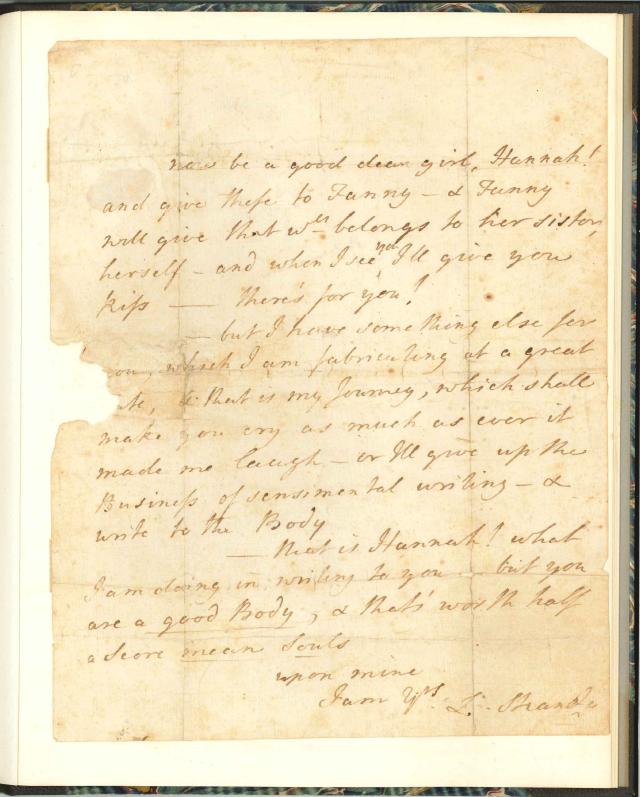 now be a good dear girl, Hannah!
and give these to Fanny – & Fanny
will give that wch belongs to her sister,
herself – and when I see you I'll give you
kiss —— there's for you!
— but I have something else for
ou, which I am fabricating at a great
te, & that is my Journey, which shall
make you cry as much as ever it
made me laugh – or I'll give up the
Business of sensimental writing – &
write to the Body
— that is Hannah! what
I am doing in writing to you – but you
are a good Body, & that's worth half
a score mean Souls
upon mine
I am Yrs L. Shandy